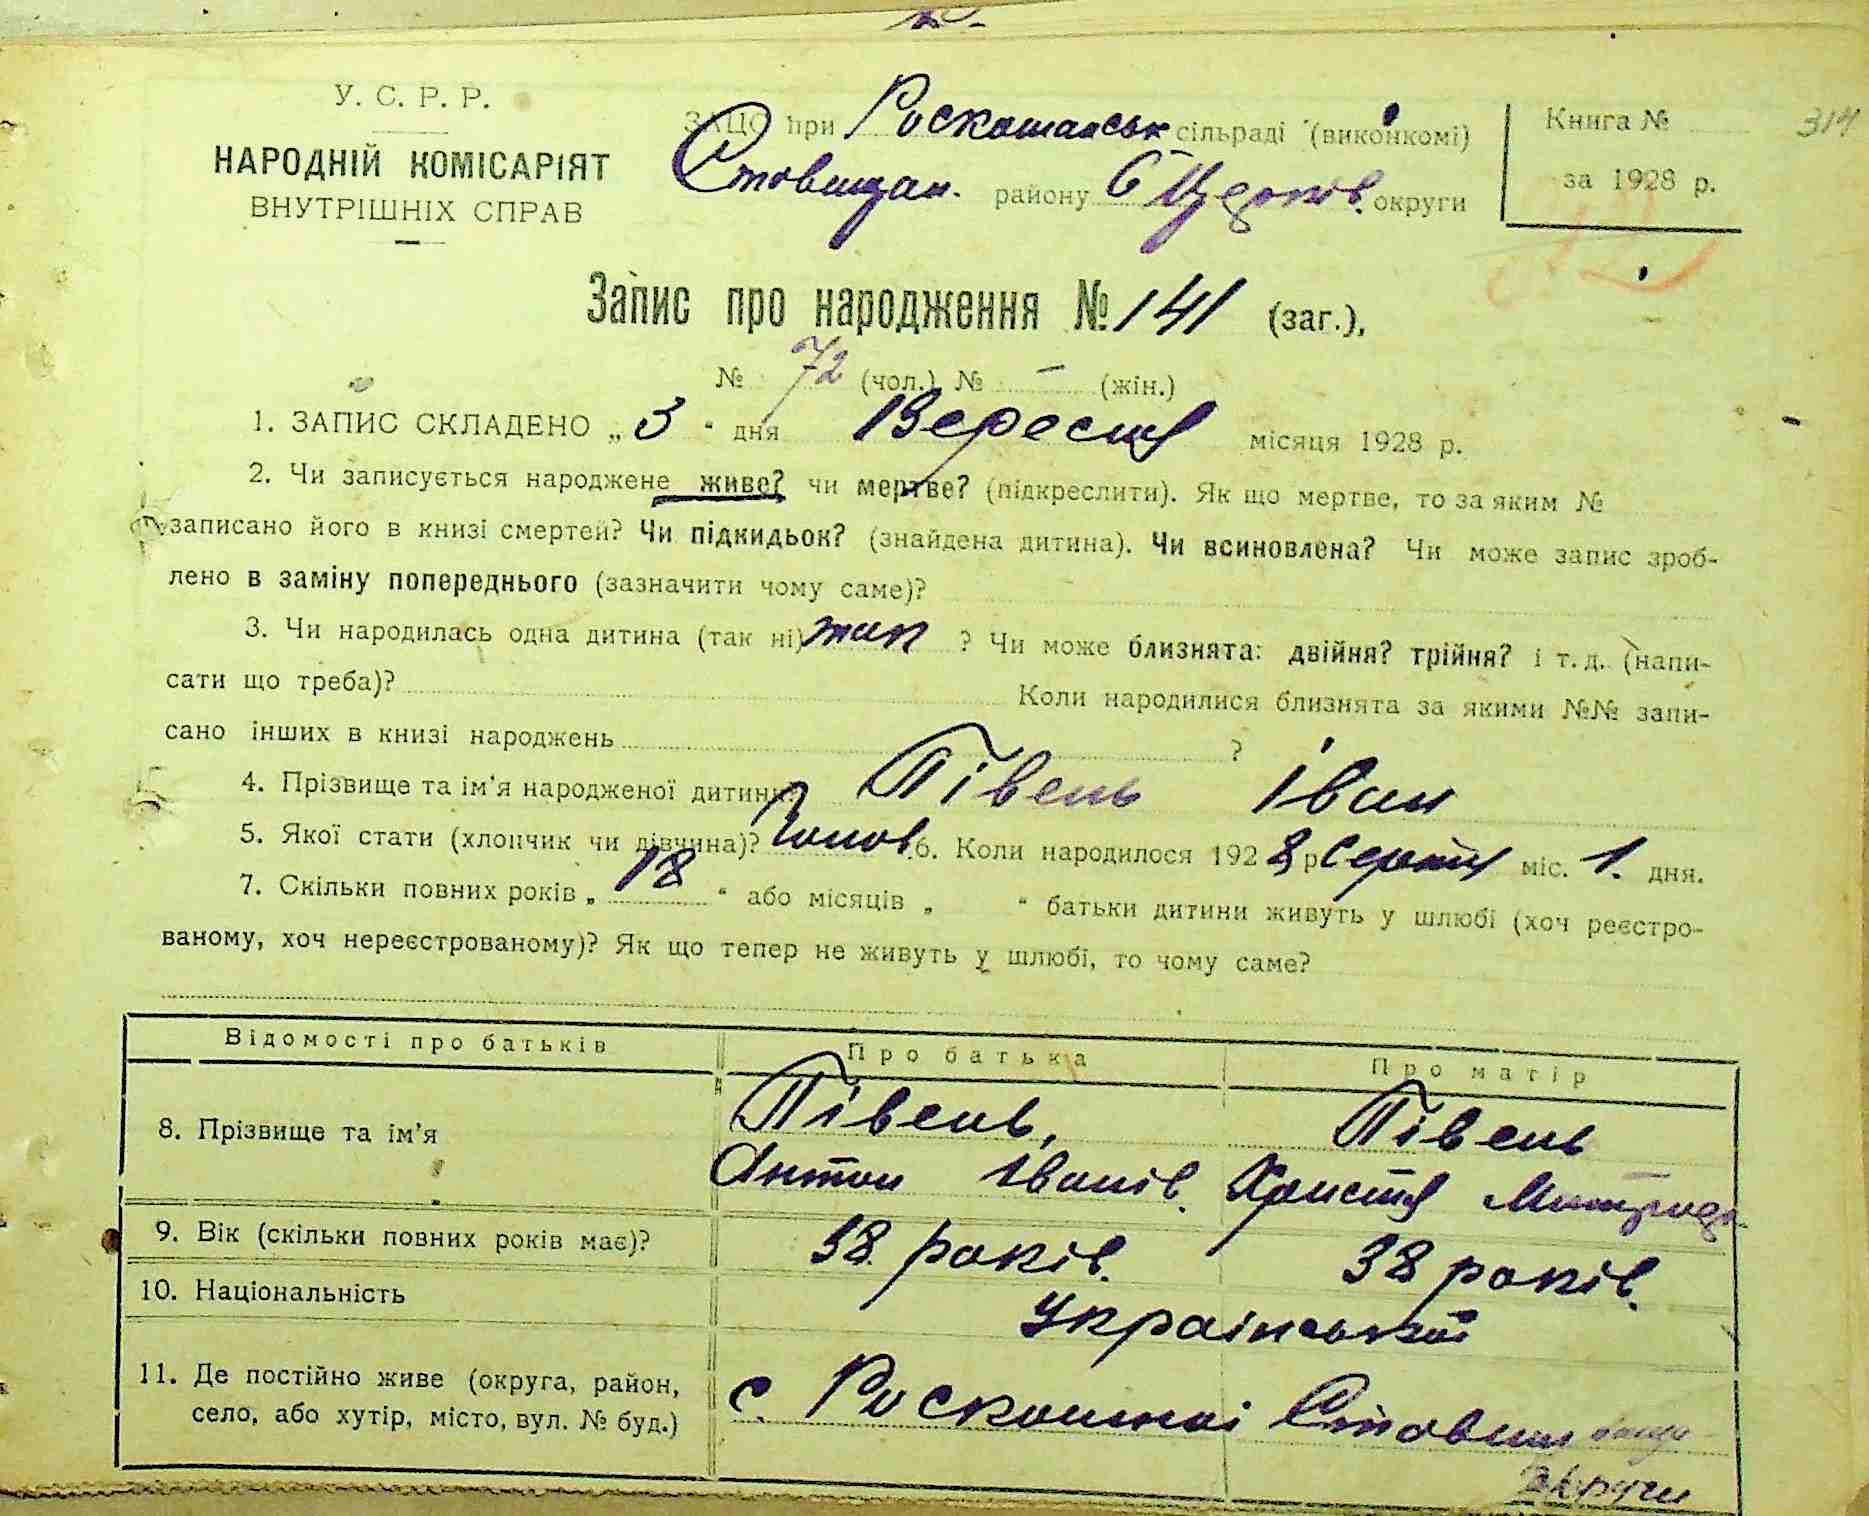 У. С. Р. Р.
НАРОДНІЙ КОМІСАРІЯТ
ВНУТРІШНІХ СПРАВ
ЗАЦС при Роскошанськ сільраді (виконкомі)
Ставищан. району Б Церків. округи
Книга №
за 1928 р.
314
Запис про народження № 141 (заг.),
№ 72 (чол.) № – (жін.)
1. ЗАПИС СКЛАДЕНО „ 3 “ дня Вересня місяця 1928 р.
2. Чи записується народжене живе? чи мертве? (підкреслити). Як що мертве, то за яким №
записано його в книзі смертей? Чи підкидьок? (знайдена дитина). Чи всиновлена? Чи може запис зроб-
лено в заміну попереднього (зазначити чому саме)?
3. Чи народилась одна дитина (так ні) так ? Чи може близнята: двійня? трійня? і т. д. (напи-
сати що треба)? Коли народилися близнята за якими №№ запи-
сано інших в книзі народжень ?
4. Прізвище та ім'я народженої дитини? Півень Іван
5. Якої стати (хлопчик чи дівчина)? Чолов. 6. Коли народилося 1928 р Серпня міс. 1. дня.
7. Скільки повних років „ 18 “ або місяців „ “ батьки дитини живуть у шлюбі (хоч реєстро-
ваному, хоч нереєстрованому)? Як що тепер не живуть у шлюбі, то чому саме?
Відомості про батьків Про батька Про матір
8. Прізвище та ім'я Півень, Півень
Антон Іванів. Христя
9. Вік (скільки повних років має)? 38 років. 38 років.
10. Національність Український
11. Де постійно живе (округа, район, с. Роскошної
село, або хутір, місто, вул. № буд.)
округи